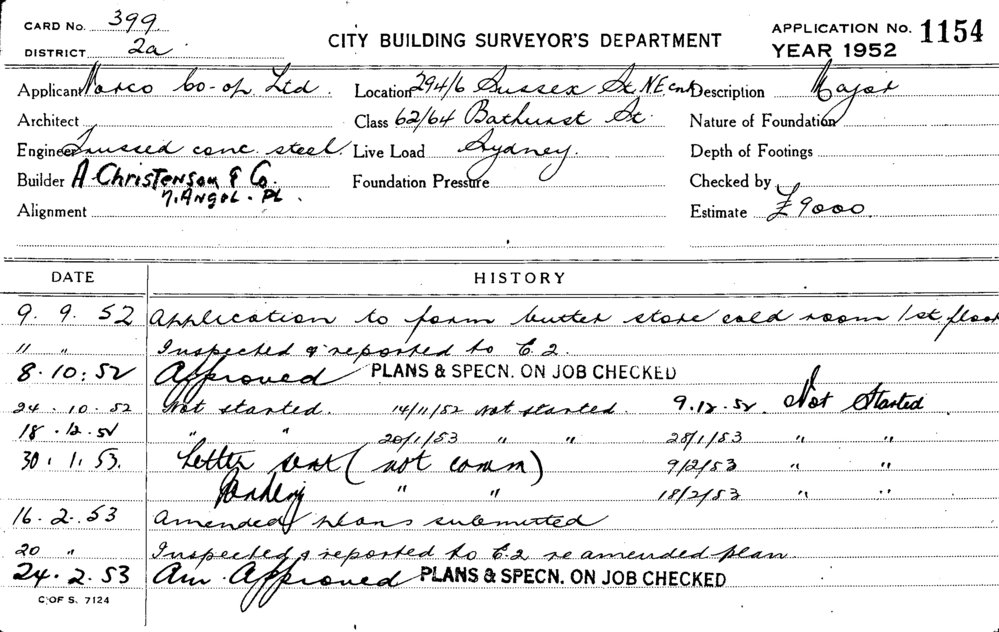 CARD No. 399
DISTRICT 2a
CITY BUILDING SURVEYOR'S DEPARTMENT
APPLICATION No. 1154
YEAR 1952
Applicant Norco Co-op Ltd. Location 294/6 Sussex St. NE cnr Description Major
Architect Class 62/64 Bathurst St. Nature of Foundation
Engineer Trussed conc. steel. Live Load Sydney. Depth of Footings
Builder A Christenson & Co. Foundation Pressure Checked by
7. Angel. Pl.
Alignment Estimate £9000
DATE HISTORY
9. 9. 52 Application to form butter store cold room 1st floor
" " Inspected & reported to E.2.
8.10.52 Approved PLANS & SPECN. ON JOB CHECKED
24.10.52 Not started. 14/11/52 Not started. 9.12.52. Not Started
18.12.52 " " 20/1/53 " " 28/1/53 " "
30.1.53. Letter sent (not comm) 9/2/53 " "
Pending " " 18/2/53 " "
16.2.53 Amended plans submitted
20 " Inspected & reported to E.2 re amended plan.
24.2.53 Am. Approved PLANS & SPECN. ON JOB CHECKED
C. OF S. 7124